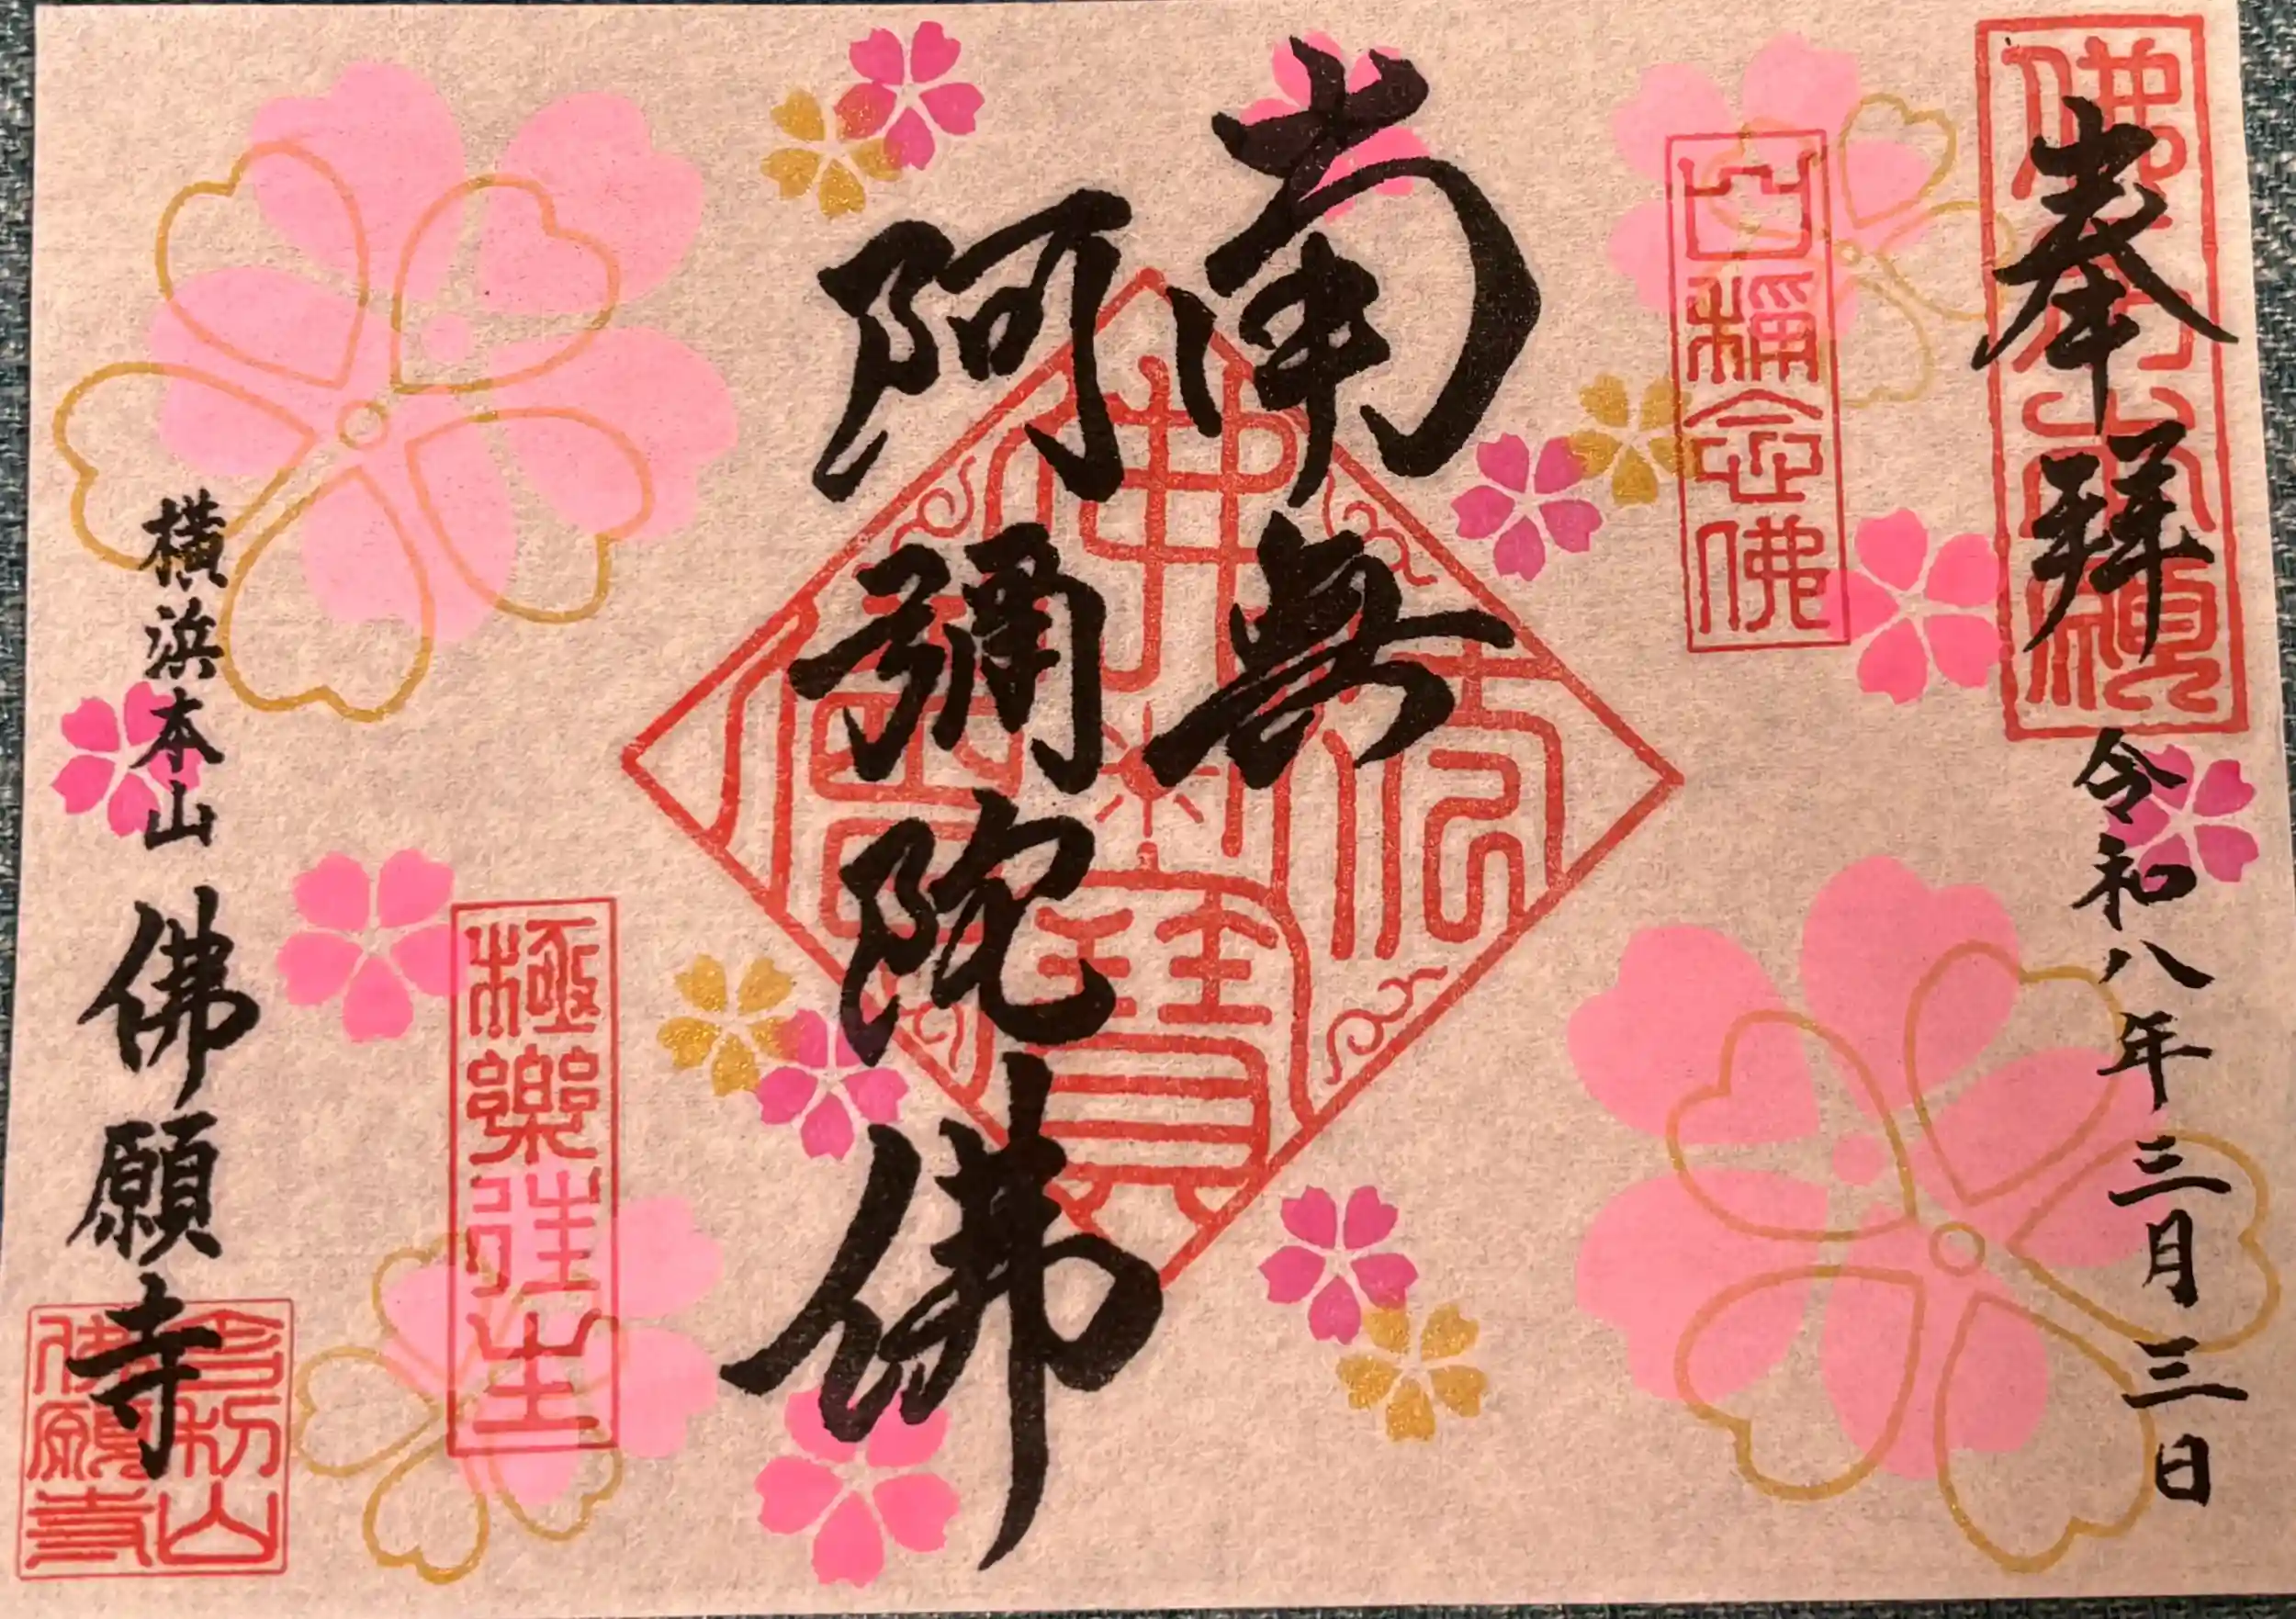 奉拜
令和八年三月三日
口稱念佛
南無
阿彌陀佛
佛法僧寶
極樂往生
横浜本山 佛願寺
佛願寺